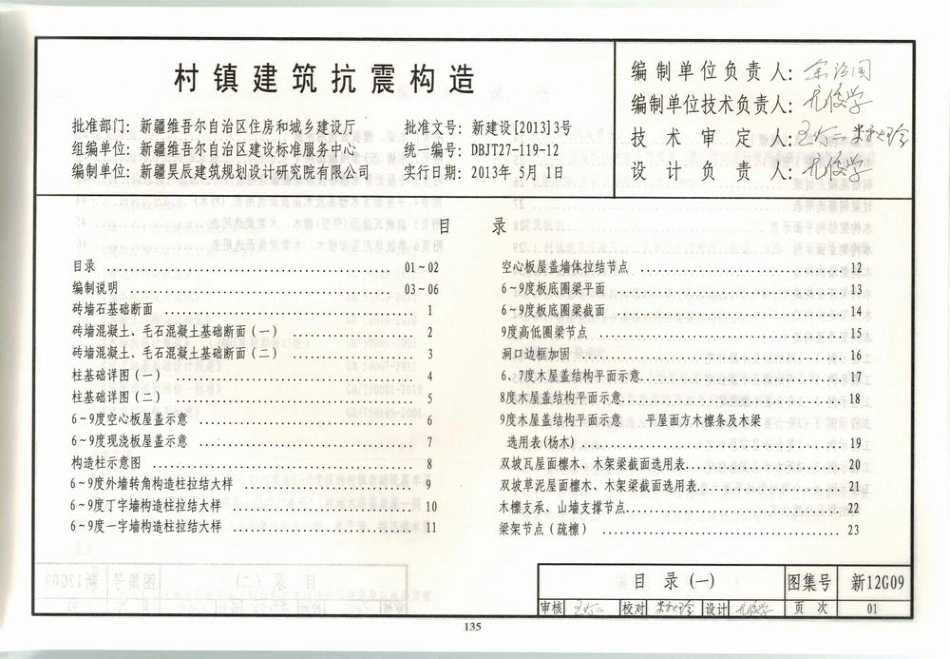 村镇建筑抗震构造
批准部门：新疆维吾尔自治区住房和城乡建设厅
组编单位：新疆维吾尔自治区建设标准服务中心
编制单位：新疆昊辰建筑规划设计研究院有限公司
批准文号：新建设[2013]3号
统一编号：DBJT27-119-12
实行日期：2013年 5月 1日
编制单位负责人：
编制单位技术负责人：
技术审定人：
设计负责人：
目 录
目录 01~02
编制说明 03~06
砖墙石基础断面 1
砖墙混凝土、毛石混凝土基础断面(一) 2
砖墙混凝土、毛石混凝土基础断面(二) 3
柱基础详图(一) 4
柱基础详图(二) 5
6~9度空心板屋盖示意 6
6~9度现浇板屋盖示意 7
构造柱示意图 8
6~9度外墙转角构造柱拉结大样 9
6~9度丁字墙构造柱拉结大样 10
6~9度一字墙构造柱拉结大样 11
空心板屋盖墙体拉结节点 12
6~9度板底圈梁平面 13
6~9度板底圈梁截面 14
9度高低圈梁节点 15
洞口边框加固 16
6、7度木屋盖结构平面示意 17
8度木屋盖结构平面示意 18
9度木屋盖结构平面示意 平屋面方木檩条及木梁
选用表(杨木) 19
双坡瓦屋面檩木、木架梁截面选用表 20
双坡草泥屋面檩木、木架梁截面选用表 21
木檩支承、山墙支撑节点 22
梁架节点(疏檩) 23
目 录(一)
图集号 新12G09
审核 校对 设计 页 次 01
135